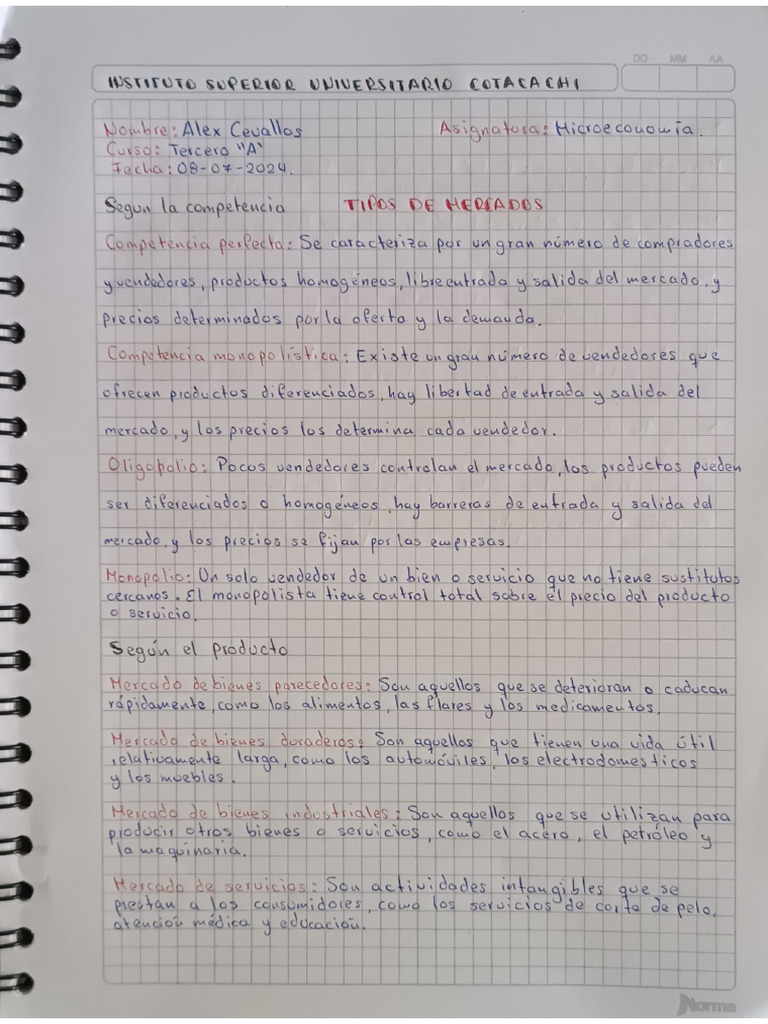 DD MM AA
INSTITUTO SUPERIOR UNIVERSITARIO COTACACHI
Nombre: Alex Cevallos Asignatura: Microeconomía.
Curso: Tercero "A"
Fecha: 08-07-2024.
Segun la competencia TIPOS DE MERCADOS
Competencia perfecta: Se caracteriza por un gran número de compradores
y vendedores, productos homogéneos, libre entrada y salida del mercado, y
precios determinados por la oferta y la demanda.
Competencia monopolística: Existe un gran número de vendedores que
ofrecen productos diferenciados, hay libertad de entrada y salida del
mercado, y los precios los determina cada vendedor.
Oligopolio: Pocos vendedores controlan el mercado, los productos pueden
ser diferenciados o homogéneos, hay barreras de entrada y salida del
mercado, y los precios se fijan por las empresas.
Monopolio: Un solo vendedor de un bien o servicio que no tiene sustitutos
cercanos. El monopolista tiene control total sobre el precio del producto
o servicio.
Según el producto
Mercado de bienes parecedores: Son aquellos que se deterioran o caducan
rápidamente, como los alimentos, las flares y los medicamentos.
Mercado de bienes duraderos: Son aquellos que tienen una vida útil
relativamente larga, como los automóviles, los electrodomesticos
y los muebles.
Mercado de bienes industriales: Son aquellos que se utilizan para
producir otros bienes o servicios, como el acero, el petróleo y
la maquinaria.
Mercado de servicios: Son actividades intangibles que se
prestan a los consumidores, como los servicios de corte de pelo,
atención médica y educación.
Norma